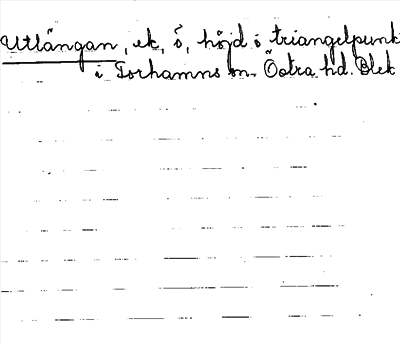 Utlängan, ek, ö, höjd o triangelpunkt
i Torhamns sn. Östra hd. Blek